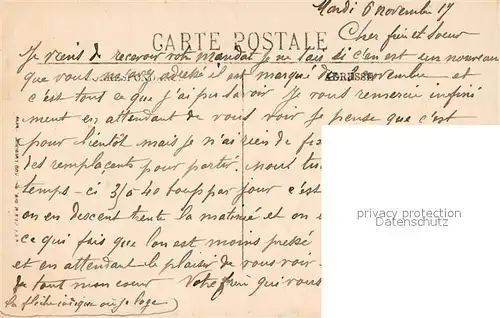 Mardi 6 novembre 17
Cher frère et Soeur
CARTE POSTALE
Je viens de recevoir votre mandat je ne sais si c'en est un nouveau
que vous m'avez adressé il est marqué du novembre et
c'est tout ce que j'ai pu savoir Je vous remercie infini
ment en attendant de vous voir Je pense que c'est
pour bientôt mais je n'ai rien de
des remplaçants pour partir.
temps-ci 35 à 40 par jour c'est
on en descent trente la matinée et on
ce qui fais que l'on est moins pressé
et en attendant le plaisir de vous voir
de tout mon coeur Votre frère qui vous
la flèche indique où je loge
privacy protection
Datenschutz